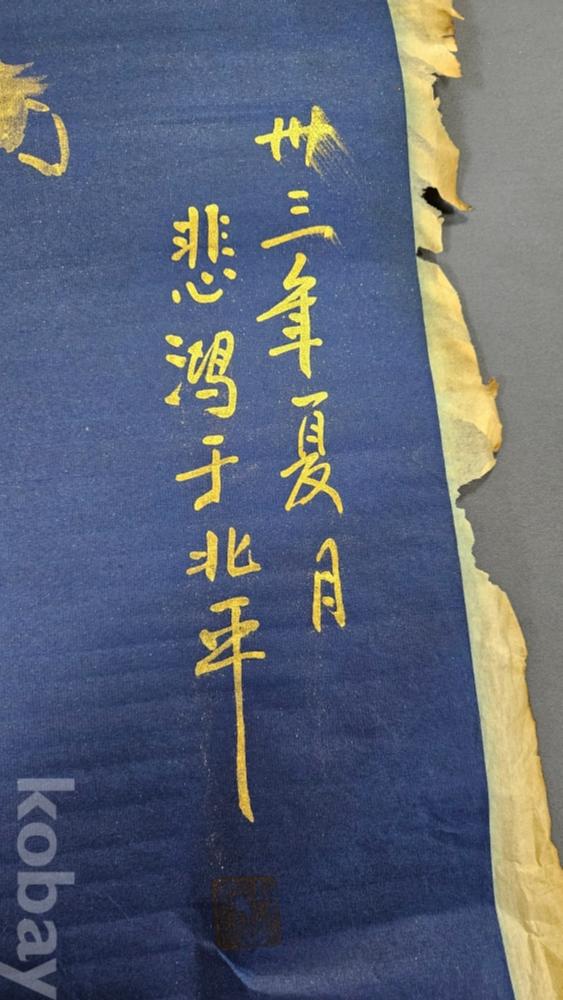 卅三年夏月
悲鸿于北平
kobay